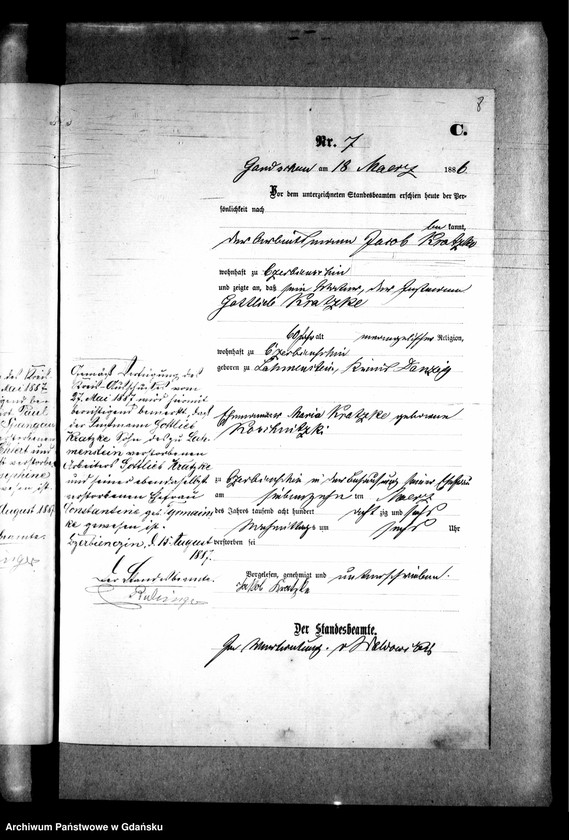 8
C.
Nr. 7
am 18 Maerz 1886.
Vor dem unterzeichneten Standesbeamten erschien heute der Per-
sönlichkeit nach
be kannt,
der Arbeitsmann Jacob Kratzke
wohnhaft zu Czerbienschin
und zeigte an, daß sein Vater, der Instmann
Gottlieb Kratzke
60 Jahr alt evangelischer Religion,
wohnhaft zu Czerbienschin
geboren zu Lahmenstein, Kreis Danzig
Ehemann der Maria Kratzke geborene
zu Czerbienschin in der Behausung seiner Ehefrau
am siebenzehn ten Maerz
des Jahres tausend acht hundert acht zig und sechs
Nachmittags um sechs Uhr
verstorben sei
Vorgelesen, genehmigt und unterschrieben.
Jakob Kratzke
Der Standesbeamte.
In Vertretung.
Gemäß Verfügung des
Kreis-Ausschusses vom
27. Mai 1887 wird hiermit
berichtigend bemerkt, daß
der Instmann Gottlieb
Kratzke Sohn des zu Lah-
menstein verstorbenen
Arbeiters Gottlieb Kratzke
und seiner ebendaselbst
verstorbenen Ehefrau
Constantine geb.
ke gewesen ist.
d. 15. August
1887.
Der Standesbeamte.
Archiwum Państwowe w Gdańsku